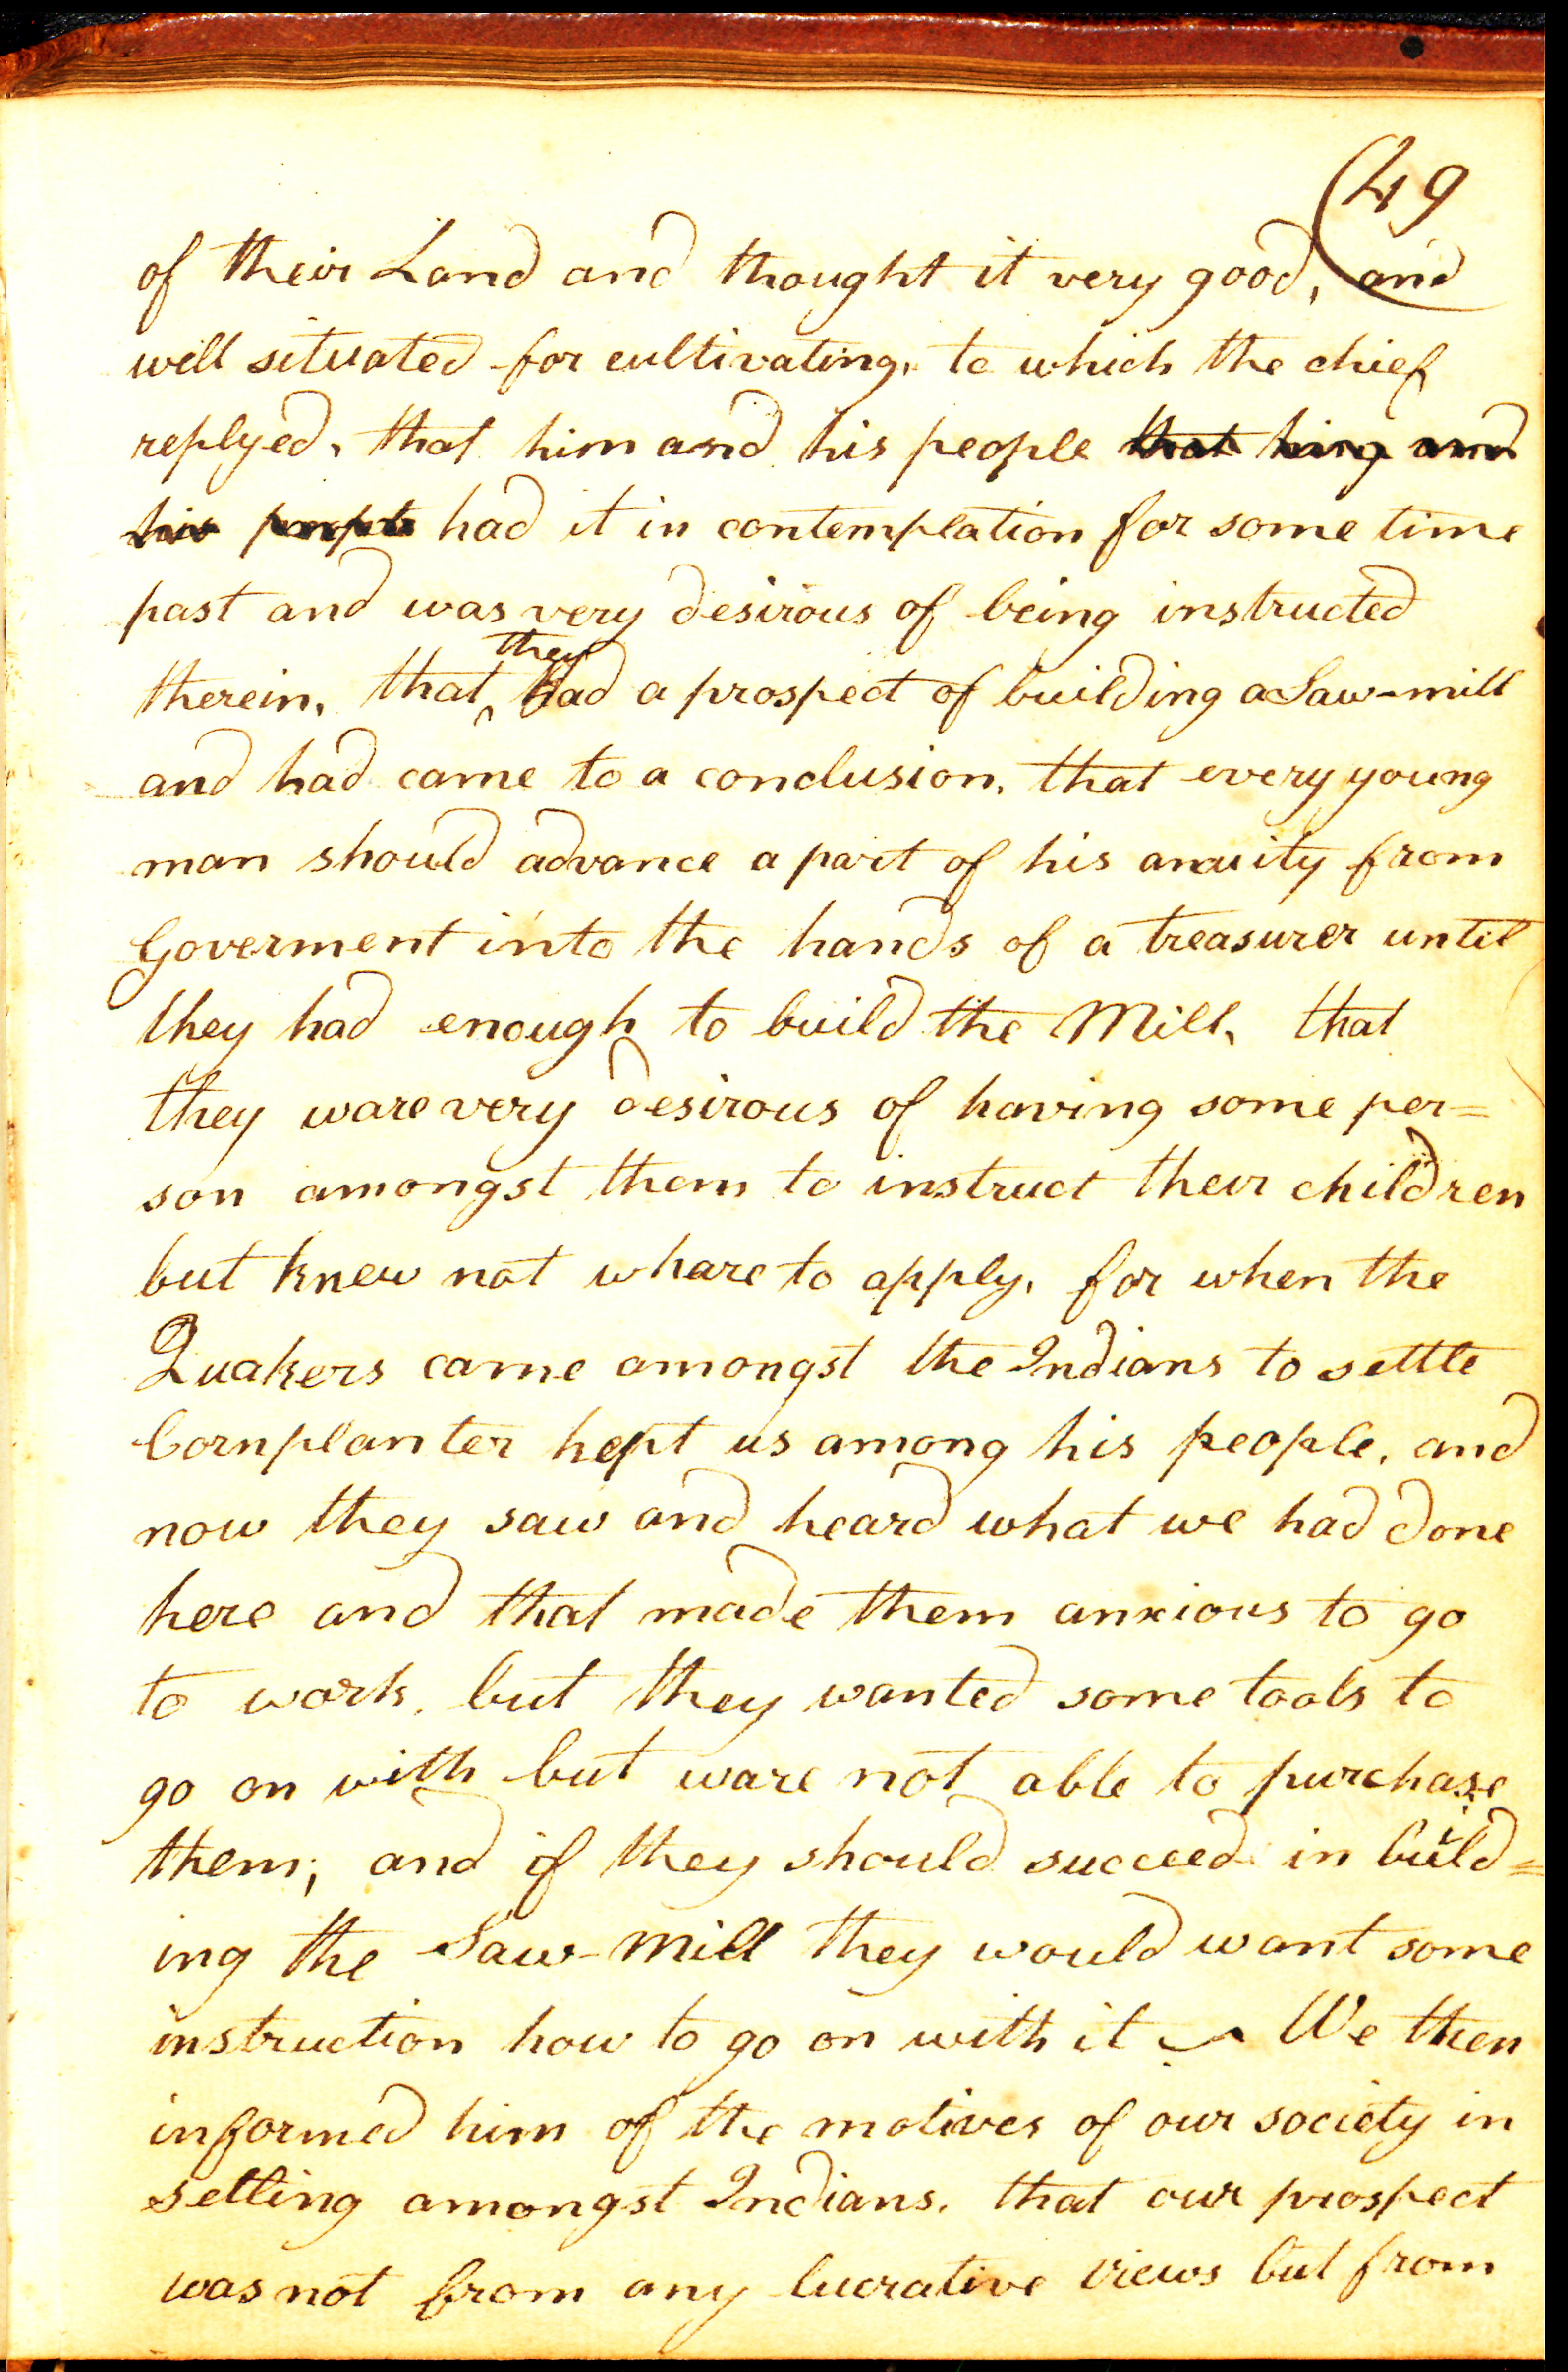 49
of their Land and thought it very good, and
well situated for cultivating, to which the chief
replyed, that him and his people that him and
his people had it in contemplation for some time
past and was very desirous of being instructed
therein, that they had a prospect of building a Saw-mill
and had came to a conclusion, that every young
man should advance a part of his anuity from
Goverment into the hands of a treasurer until
they had enough to build the Mill, that
they ware very desirous of having some per=
son amongst them to instruct their children
but knew not whare to apply, for when the
Quakers came amongst the Indians to settle
Cornplanter kept us among his people, and
now they saw and heard what we had done
here and that made them anxious to go
to work, but they wanted some tools to
go on with but ware not able to purchase
them; and if they should succeed in build=
ing the Saw-Mill they would want some
instruction how to go on with it ~ We then
informed him of the motives of our society in
setling amongst Indians, that our prospect
was not from any lucrative views but from